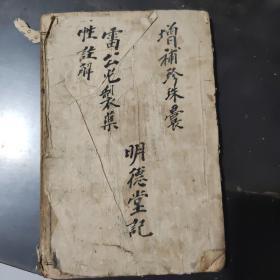 增補珍珠囊
雷公炮製藥
性註解
明德堂記